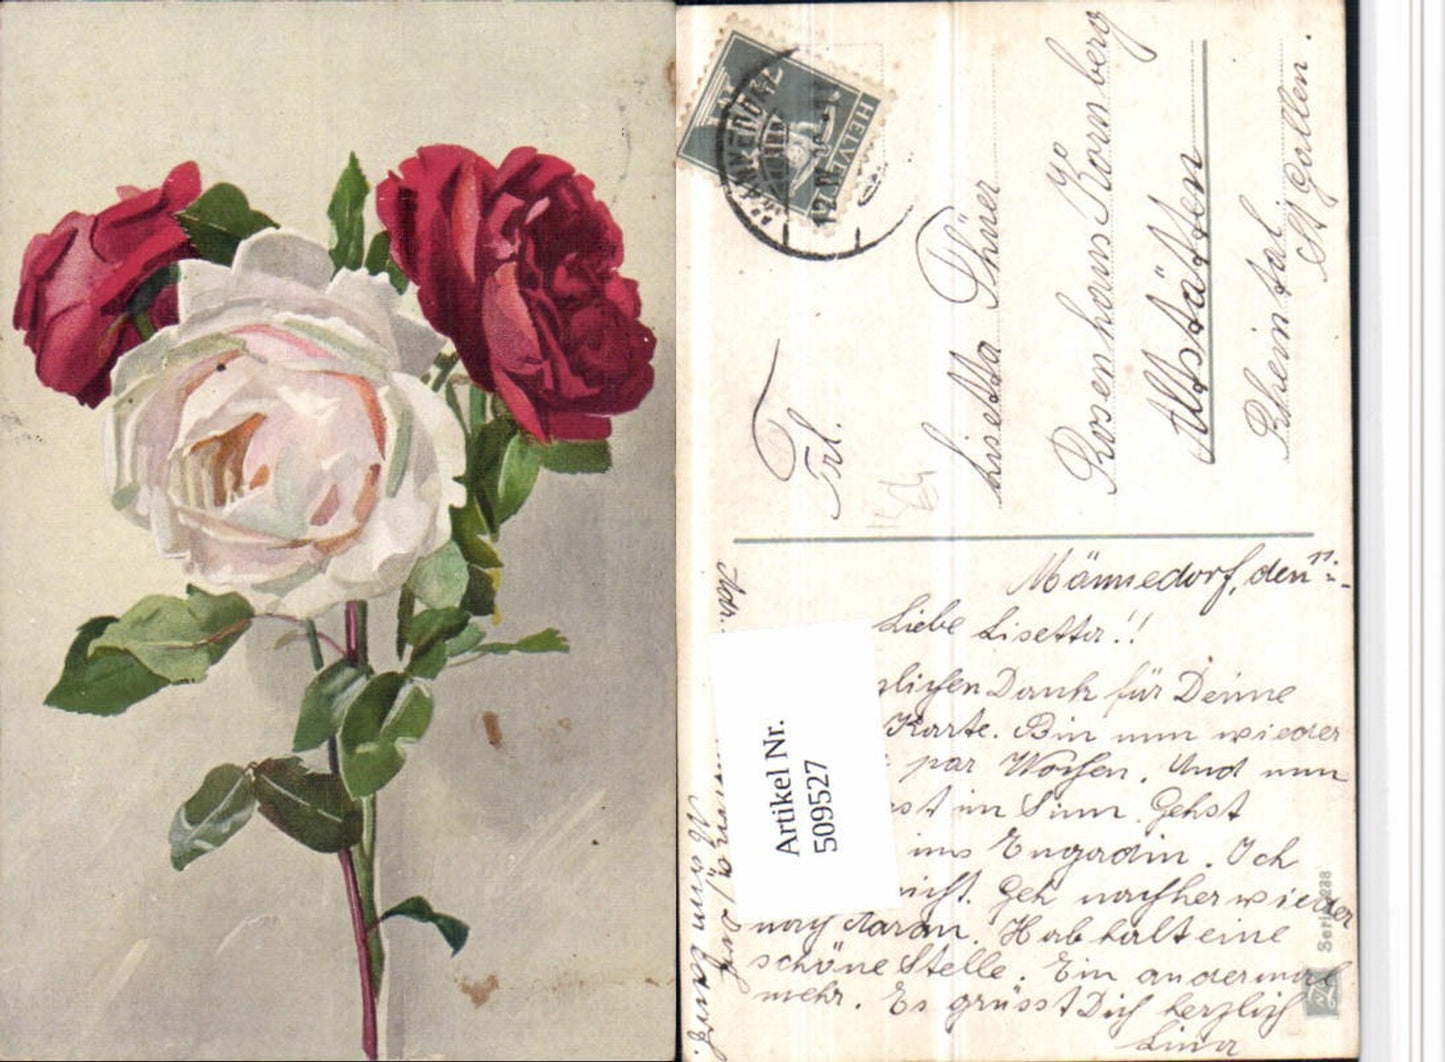 HELVE
MÄNNEDORF
12.IV.
Frl.
Lisetta Thürer
Rosenhaus Kornberg
Altstätten
Rheintal
St Gallen.
Männedorf, den
Liebe Lisetta!!
glichen Dank für Deine
Karte. Bin nun wieder
par Wochen. Und nun
st im Sinn. Gehst
ins Engadin. Ich
nicht. Geh nachher wieder
nach Aarau. Hab halt eine
schöne Stelle. Ein andermal
mehr. Es grüsst Dich herzlich
Lina
Adr.
Artikel Nr.
509527
Serie 238